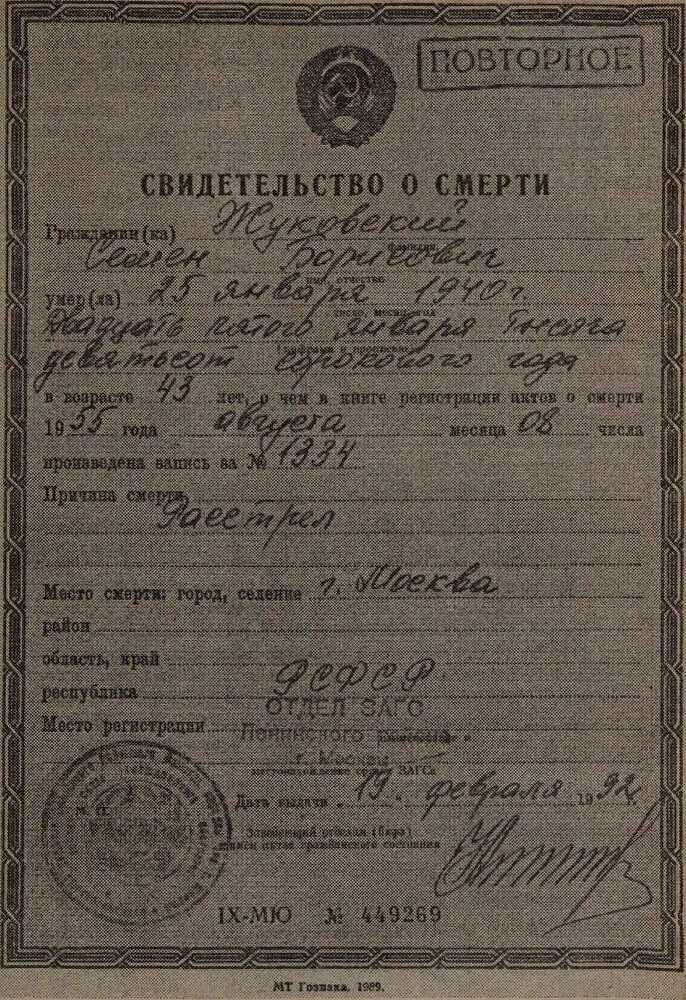 ПОВТОРНОЕ
СВИДЕТЕЛЬСТВО О СМЕРТИ
Гражданин(ка) Жуковский
фамилия,
Семен Борисович
имя, отчество
умер(ла) 25 января 1940 г.
число, месяц, год
двадцать пятого января тысяча
девятьсот сорокового года
в возрасте 43 лет, о чем в книге регистрации актов о смерти
1955 года августа месяца 08 числа
произведена запись за № 1334
Причина смерти
Расстрел
Место смерти: город, селение г. Москва
район
область, край
республика РСФСР
ОТДЕЛ ЗАГС
Место регистрации Ленинского
г. Москвы
наименование органа ЗАГСа
Дата выдачи 19 февраля 1992 г.
Заведующий отделом (бюро)
записи актов гражданского состояния
IX-МЮ № 449269
МТ Гознака. 1989.